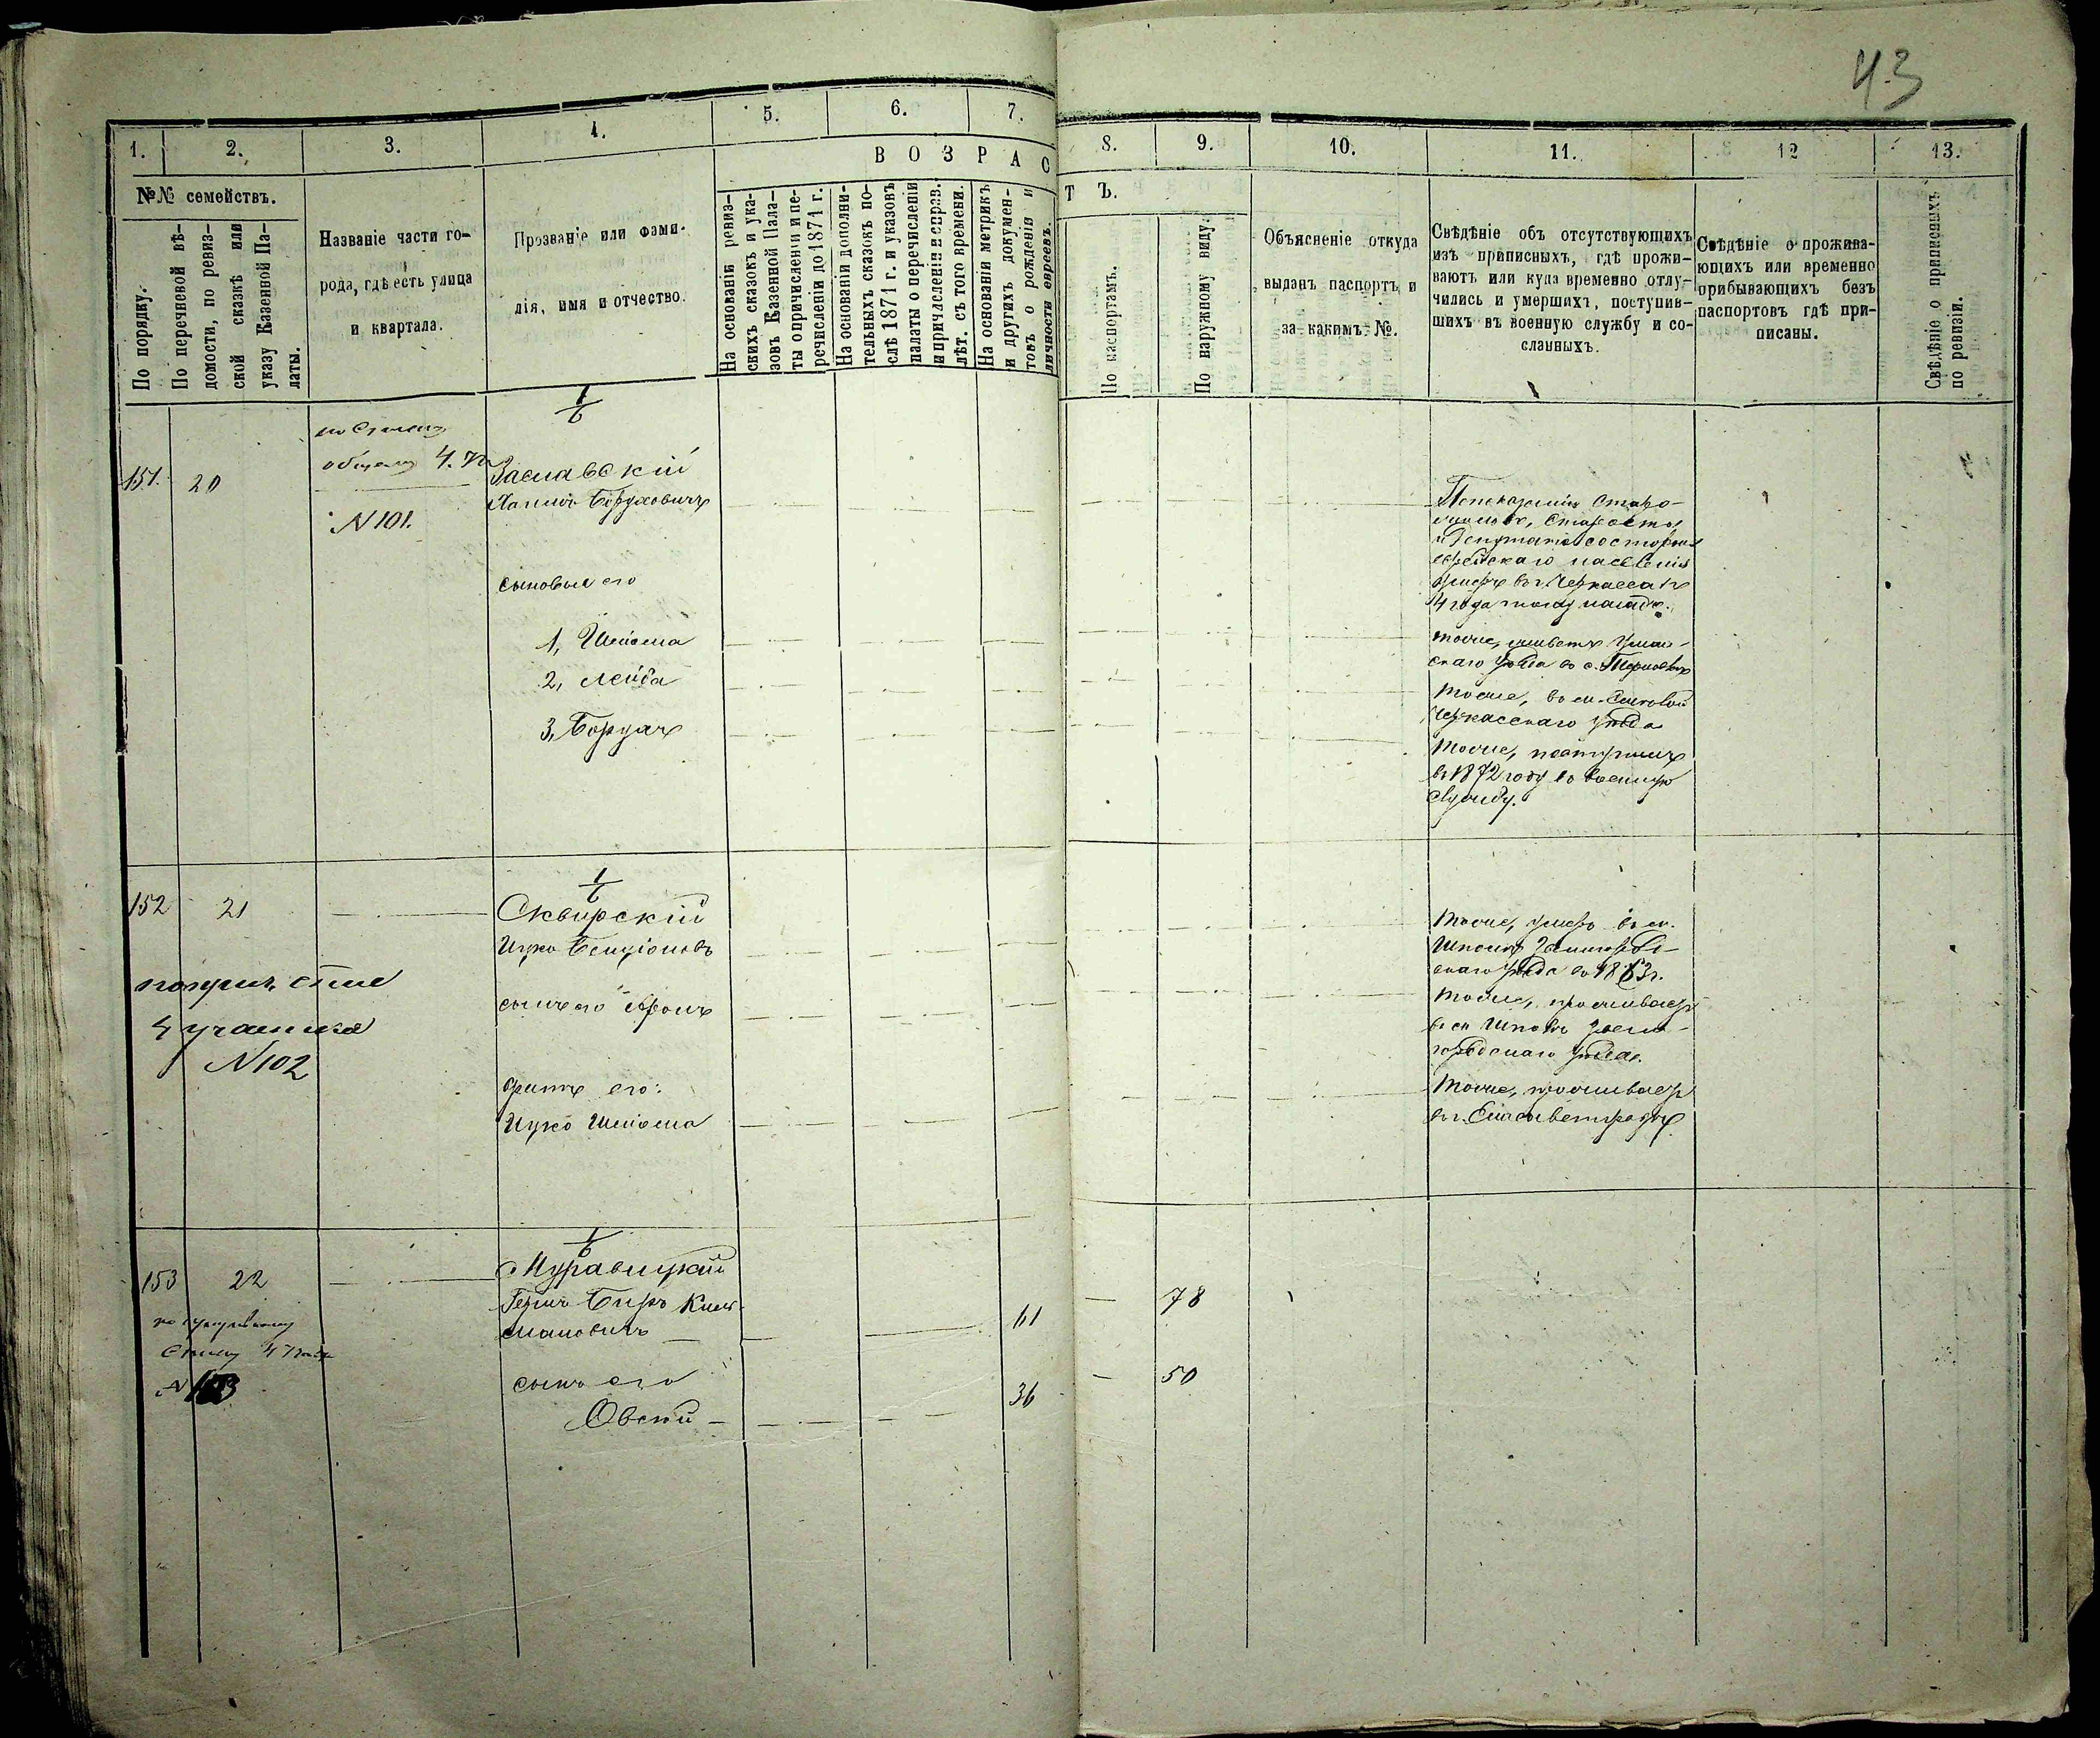 43
1.
2.
3.
4.
5.
6.
7.
8.
9.
10.
11.
12
13.
№№ семействъ.
По порядку.
По перечневой вѣ-
домости, по ревиз-
ской сказкѣ или
указу Казенной Па-
латы.
Названіе части го-
рода, гдѣ есть улица
и квартала.
Прозваніе или фами-
лія, имя и отчество.
ВОЗРАСТЪ.
На основаніи ревиз-
скихъ сказокъ и ука-
зовъ Казенной Пала-
ты о причисленіи и пе-
речисленіи до 1871 г.
На основаніи дополни-
тельныхъ сказокъ по-
слѣ 1871 г. и указовъ
палаты о перечисленіи
и причисленіи и справ.
лѣт. съ того времени.
На основаніи метрикъ
и другихъ докумен-
товъ о рожденіи и
личности евреевъ.
По паспортамъ.
По наружному виду.
Объясненіе откуда
выданъ паспортъ и
за какимъ №.
Свѣдѣніе объ отсутствующихъ
изъ приписныхъ, гдѣ прожи-
ваютъ или куда временно отлу-
чились и умершихъ, поступив-
шихъ въ военную службу и со-
сланныхъ.
Свѣдѣніе о прожива-
ющихъ или временно
прибывающихъ безъ
паспортовъ гдѣ при-
писаны.
Свѣдѣніе о приписныхъ
по ревизіи.
151.
20
N 101.
1/6
Заславскій
Боруховичъ
сыновья его
1, Шейома
2, Лейба
3, Борухъ
По показанію
еврейскаго населенія
умеръ въ г. Черкассахъ
4 года тому назадъ.
тоже, живетъ Уман-
скаго уѣзда въ с.
тоже, въ м.
Черкасскаго уѣзда
тоже, поступилъ
въ 1872 году въ военную
службу.
152
21
4 участка
N 102
1/6
Сквирскій
Ицко Бенціоновъ
сынъ его Аронъ
братъ его:
Ицко Шейома
тоже, умеръ въ м.
скаго уѣзда въ 1863 г.
тоже, проживаетъ
въ м. Шпола Звени-
городскаго уѣзда.
тоже, проживаетъ
въ г. Елисаветградѣ
153
22
N 103
1/6
Муравицкій
Гершъ Беръ
61
78
сынъ его
Овсей
36
50